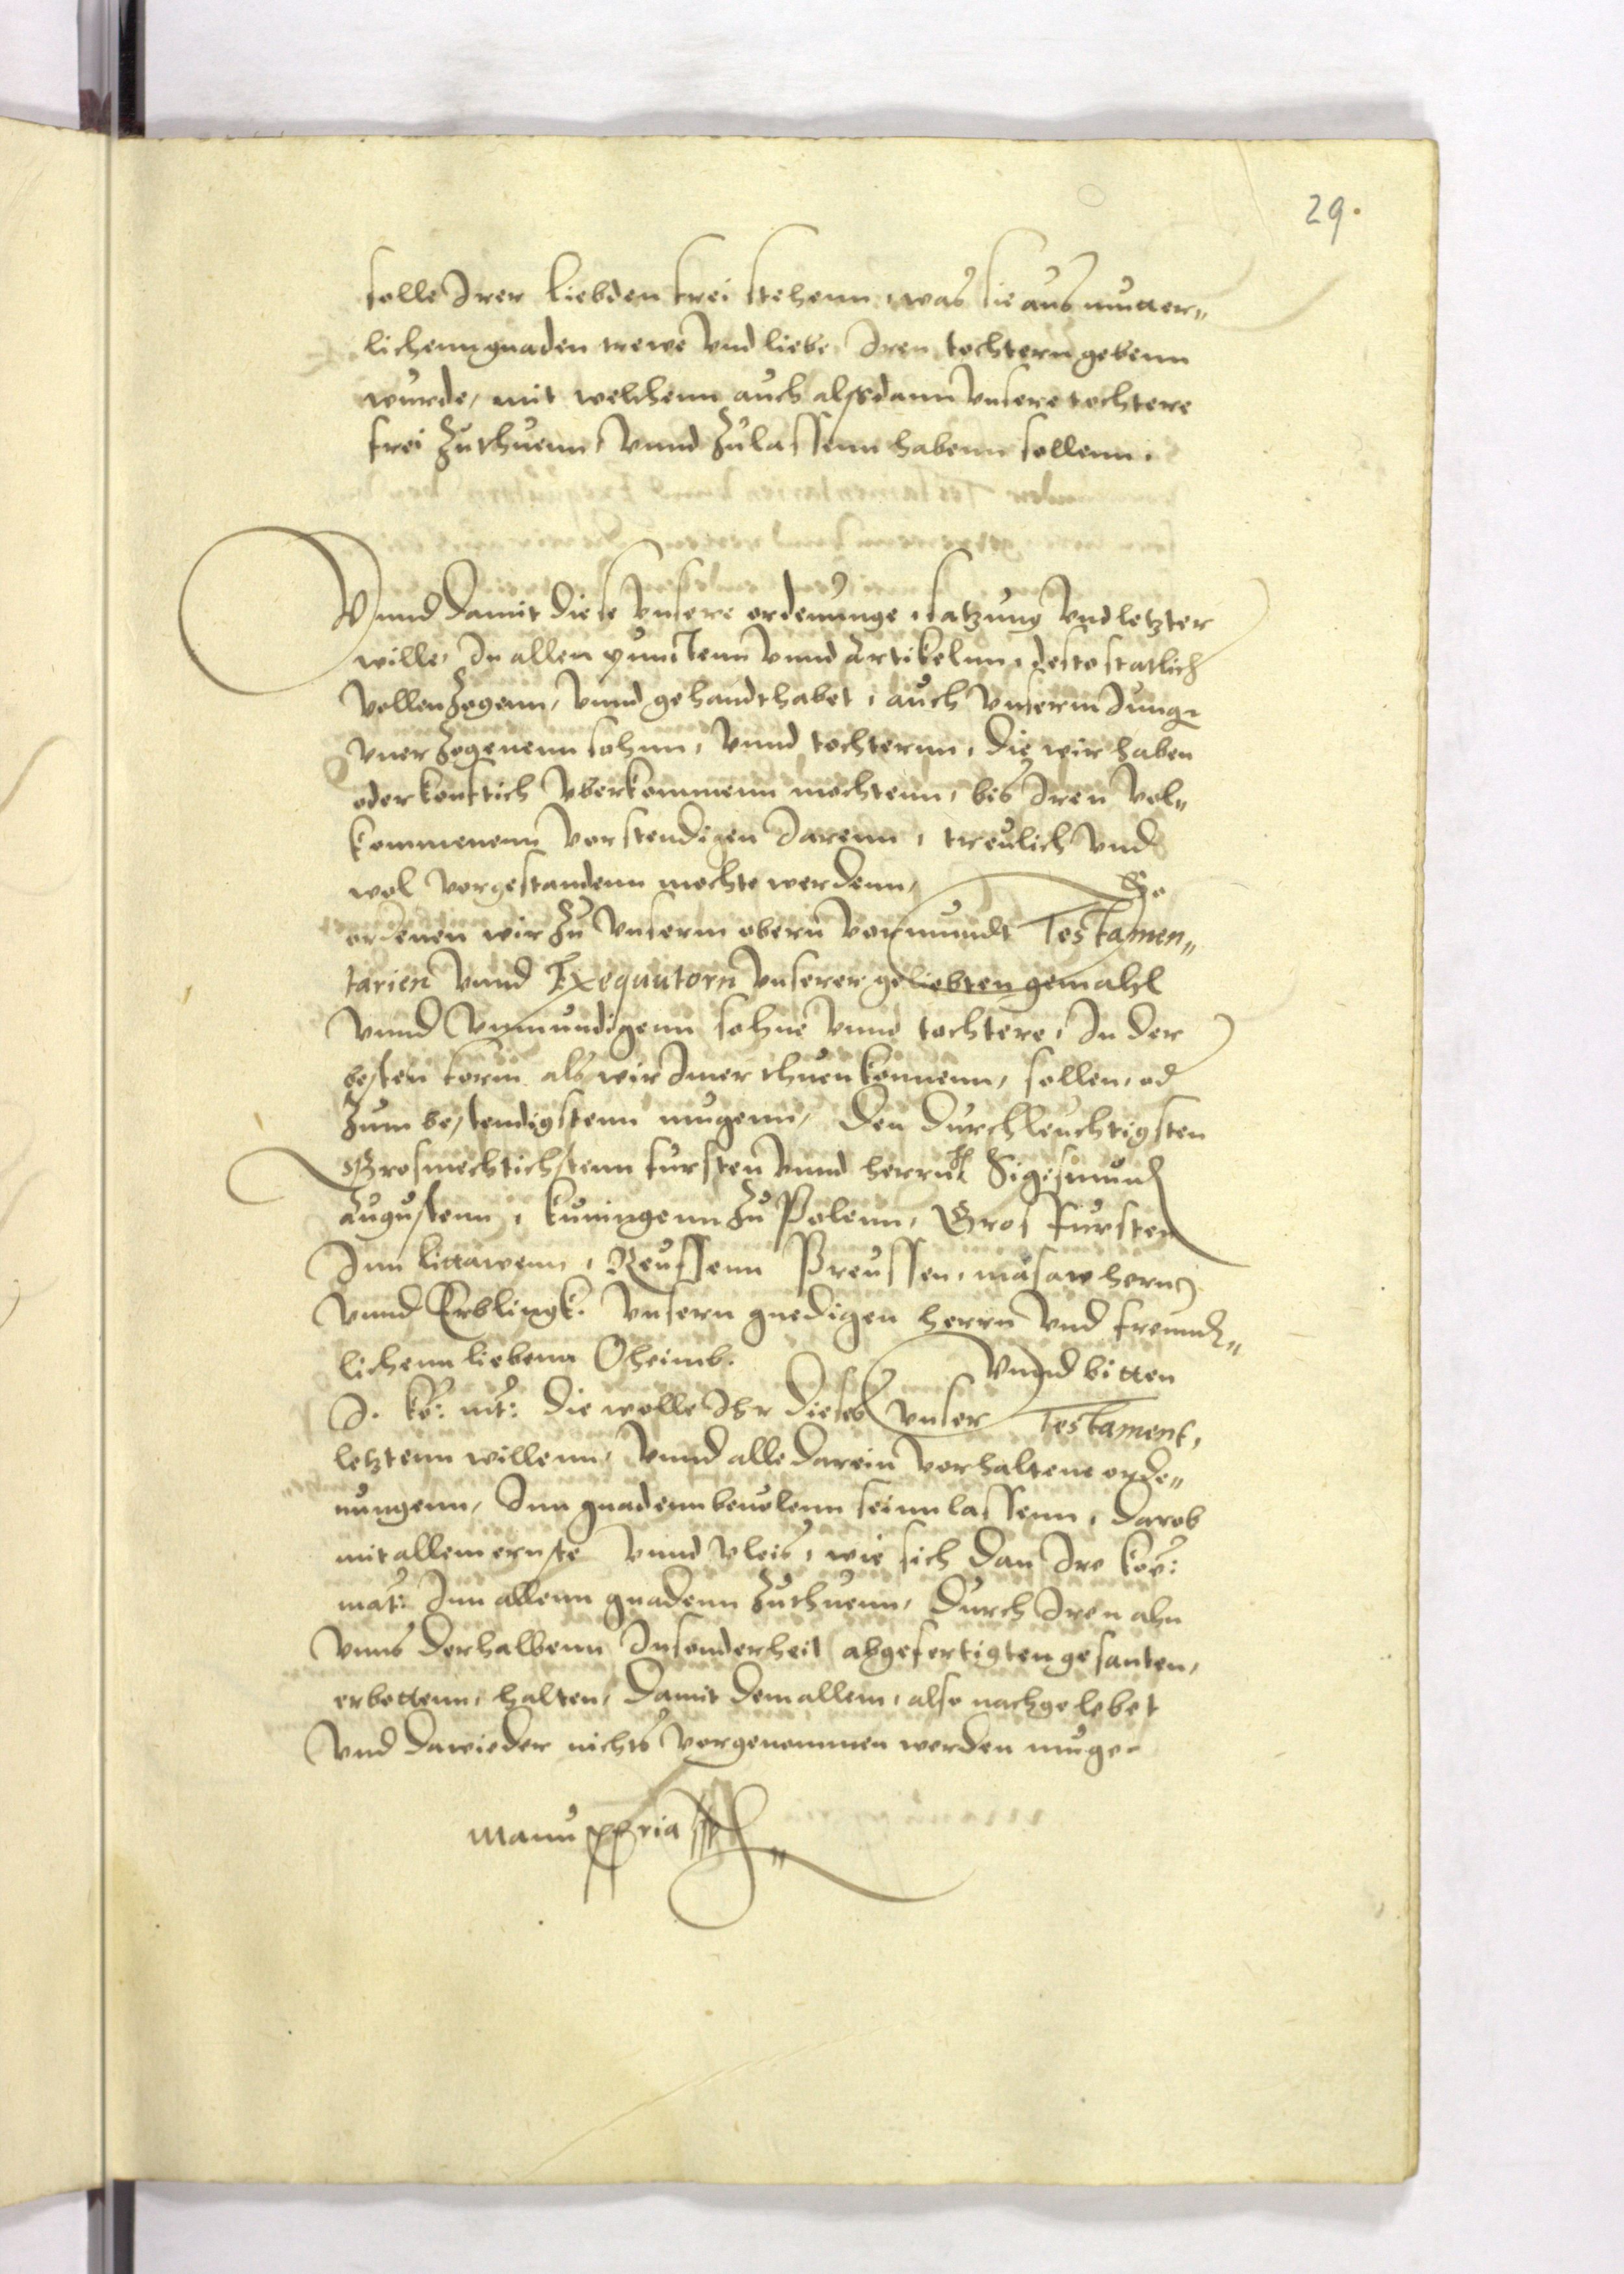 29.
solle Irer Liebden frei stehenn, was sie aus mutter„
lichenn gnaden trewe vnd liebe Iren tochtern gebenn
wurde, mit welchenn auch alßdann vnsere tochtere
frei zuthuenn, vnnd zulassenn habenn sollenn.
Vnnd damit diese vnsere ordenunge, satzung vnd letzter
wille, In allen punctenn vnnd artikelnn, desto statlich
vollenzogenn, vnnd gehandthabet, auch vnserm Jung
vnerzogenenn sohnn, vnnd tochternn, die wir haben
oder konftich vberkommenn mochtenn, bis Iren vol„
kommenenn vorstendigen Jarenn, treulich vnd
wol vorgestandenn mochte werdenn, So
ordenen wir zu vnserm obern vormundt Testamen„
tarien vnnd Exequutorn vnserer geliebten gemahl
vnnd vnmundigenn sohne vnnd tochtere, In der
besten form als wir Imer thuen konnenn, sollen, od
zum bestendigstenn mugenn, den durchleuchtigsten
Grosmechtichstenn fursten vnnd herrn h Sigesmund
Augustenn, kuningenn zu Polenn, Gros fursten
Inn Littawenn, Reussenn Preussen, Masaw hern
vnnd Erblingk. vnsern gnedigen herrn vnd freund„
lichenn liebenn Oheimb. Vnnd bitten
I. ko: mt: die wolle Ihr dieses vnser Testament,
letztenn willenn, vnnd alle darein vorhaltene orde„
nungenn, Inn gnadenn beuolenn seinn lassenn, darob
mit allem ernste vnnd vleis, wie sich dan Ire ko:
mat: Inn allenn gnadenn zuthuenn, durch Iren ahn
vnns derhalbenn Insonderheit abgefertigten gesanten,
erbottenn, halten, damit dem allem, also nachgelebet
vnd dawieder nichts vorgenommen werden muge
manu ppria